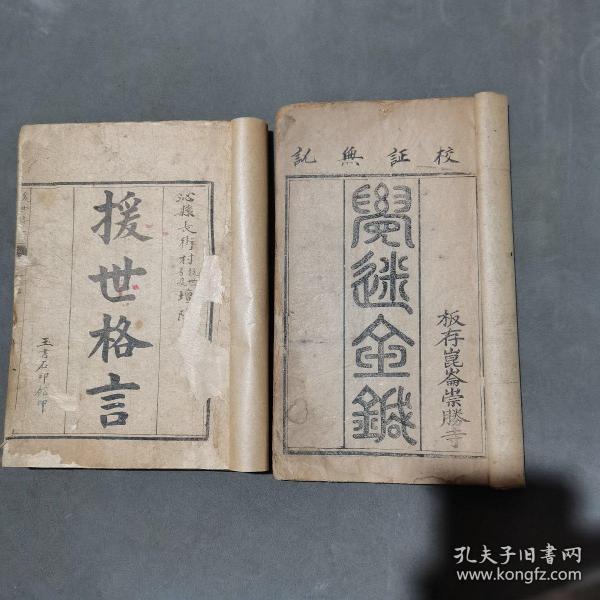 沁縣長街村
援世格言
玉書石印館印
校証無訛
板存崑崙崇勝寺
覺迷金鍼
孔夫子旧书网
www.kongfz.com